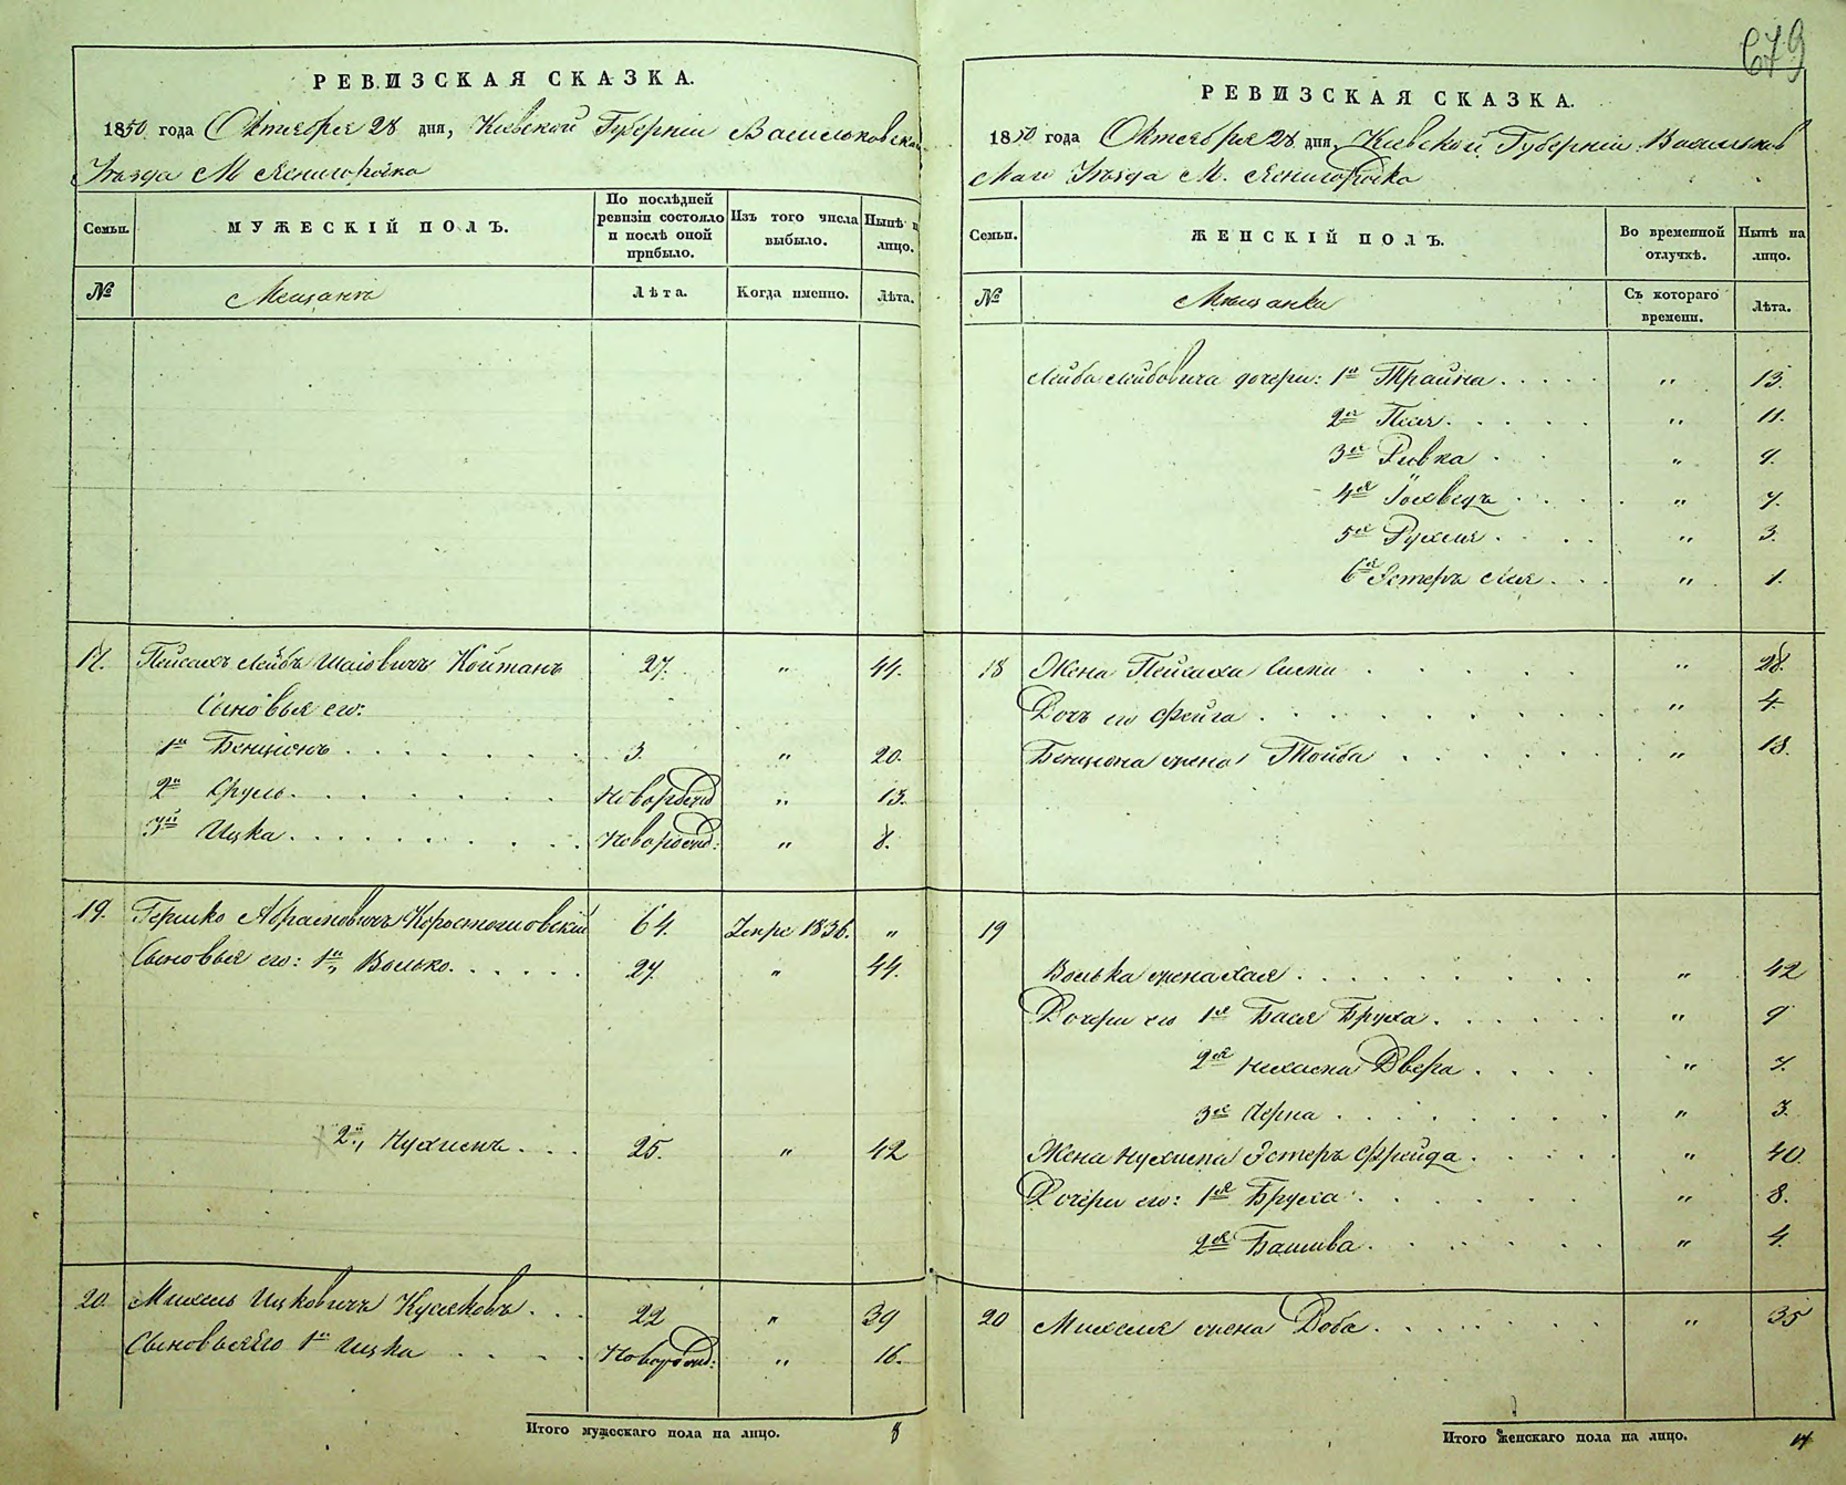 679
РЕВИЗСКАЯ СКАЗКА.
1850 года Октября 28 дня, Кіевской Губерніи Васильковска
Уѣзда М Ясногородка
Семьи.
МУЖЕСКІЙ ПОЛЪ.
По послѣдней ревизіи состояло и послѣ оной прибыло.
Изъ того числа выбыло.
Нынѣ н лицо.
№
Мещанъ
Лѣта.
Когда именно.
Лѣта.
17. Пейсахъ Лейбъ Шаіовичъ Койтанъ 27. " 44.
Сыновья его:
1й Бенціонъ 3. " 20.
2й Сруль Новорожд " 13.
3й Ицка Новорожд: " 8.
19. Гершко Абрамовичъ Коростошовскій 64. 1836. "
Сыновья его: 1й, Волько 27. " 44.
2й, Нухимъ 25. " 42
20. Михель Ицковичъ 22 " 39
Сыновья его 1й Ицка Новорожд: " 16.
Итого мужескаго пола на лицо. 8
РЕВИЗСКАЯ СКАЗКА.
1850 года Октября 28 дня, Кіевской Губерніи Васильков
скаго Уѣзда М. Ясногородка
Семьи.
ЖЕНСКІЙ ПОЛЪ.
Во временной отлучкѣ.
Нынѣ на лицо.
№
Мещанки
Съ котораго времени.
Лѣта.
Лейба Лейбовича дочери: 1я Трайна " 13.
2я Песя " 11.
3я Ривка " 9.
4я Іохведъ " 7.
5я Рухля " 3.
6я Эстеръ Лея " 1.
18 Жена Пейсаха " 28.
Дочь его Фейга " 4.
Бенціона жена Тойба " 18.
19
Волька жена Хая " 42
Дочери его 1я Бася Бруха " 9
2я Нехама Двера " 7.
3я Черна " 3.
Жена Нухима Эстеръ Фрейда " 40.
Дочери его: 1я Бруха " 8.
2я Башива " 4.
20 Михеля жена Доба " 35
Итого женскаго пола на лицо. 14